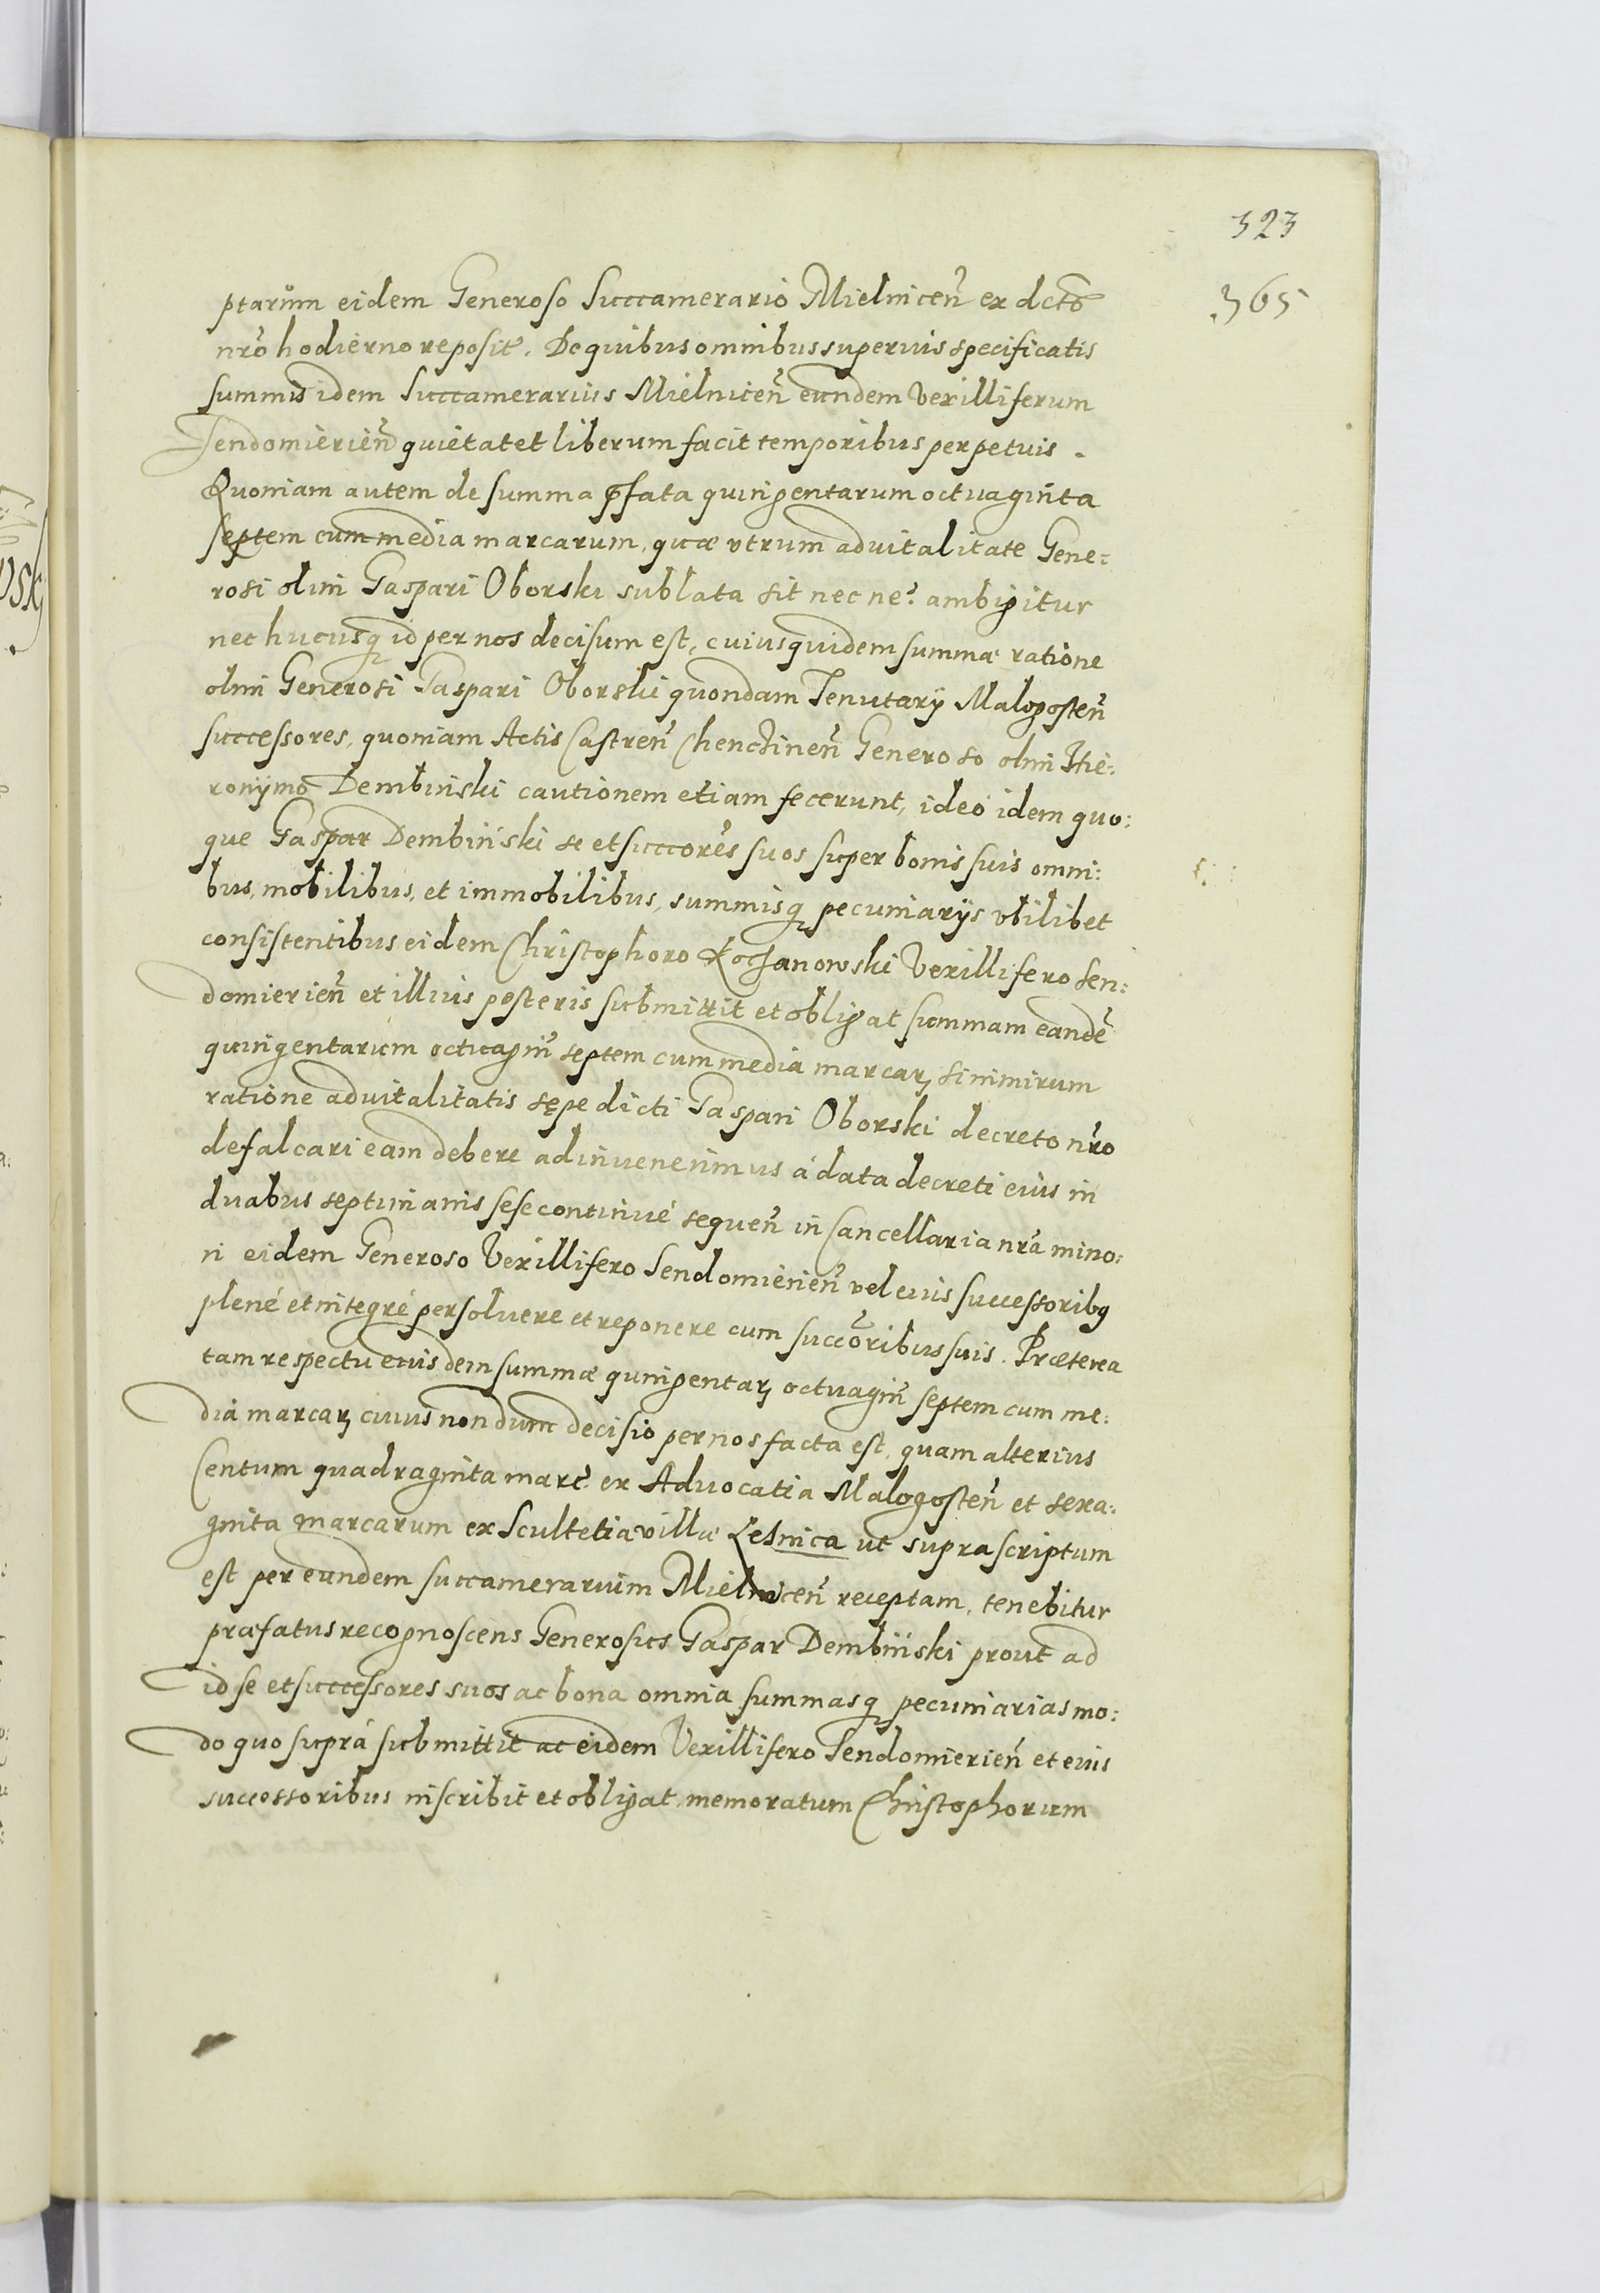 323
365
ptarum eidem Generoso Succamerario Mielnicen̄ ex dcto
nr̄o hodierno reposit. De quibus omnibus superius specificatis
summis idem Succamerarius Mielnicen̄ eundem Vexilliferum
Sendomirien̄ quietat et liberum facit temporibus perpetuis.
Quoniam autem de summa p̄fata quingentarum octuaginta
septem cum media marcarum, quæ utrum advitalitate Gene-
rosi olim Gaspari Oborski sublata sit nec ne? ambigitur
nec hucusq̨ id per nos decisum est, cuius quidem summæ ratione
olim Generosi Gaspari Oborski quondam Tenutarij Malogosten̄
successores, quoniam Actis Castren̄ Chencinen̄ Generoso olim Hie:
ronymo Dembinski cautionem etiam fecerunt, ideo idem quo:
que Gaspar Dembiński se et succores̄ suos super bonis suis omni:
bus, mobilibus, et immobilibus, summisq̨ pecuniarijs ubilibet
consistentibus eidem Christophoro Kochanowski Vexillifero Sen:
domierien̄ et illius posteris submittit et obligat summam eandē
quingentarum octuagin̄ septem cum media marcaꝝ si nimirum
ratione advitalitatis sępe dicti Gaspari Oborski decreto nr̄o
defalcari eam debere adinvenerimus à data decreti eius in
duabus septimanis sese continué sequen̄ in Cancellaria nr̄a mino:
ri eidem Generoso Vexillifero Sendomierien̄ vel eius successoribq
plené et integré persolvere et reponere cum succōribus suis. Præterea
tam respectu eiusdem summæ quingentaꝝ octuagin̄ septem cum me:
dia marcaꝝ cuius nondum decisio per nos facta est, quam alterius
Centum quadraginta marc̄ ex Advocatia Malogosten̄ et sexa:
ginta marcarum ex Scultetia villæ Lesnica ut supra scriptum
est per eundem succamerarium Mielnicen̄ receptam, tenebitur
præfatus recognoscens Generosus Gaspar Dembiński prout ad
id se et successores suos ac bona omnia summasq̨ pecuniarias mo:
do quo suprá submittit ac eidem Vexillifero Sendomierien̄ et eius
successoribus inscribit et obligat memoratum Christophorum